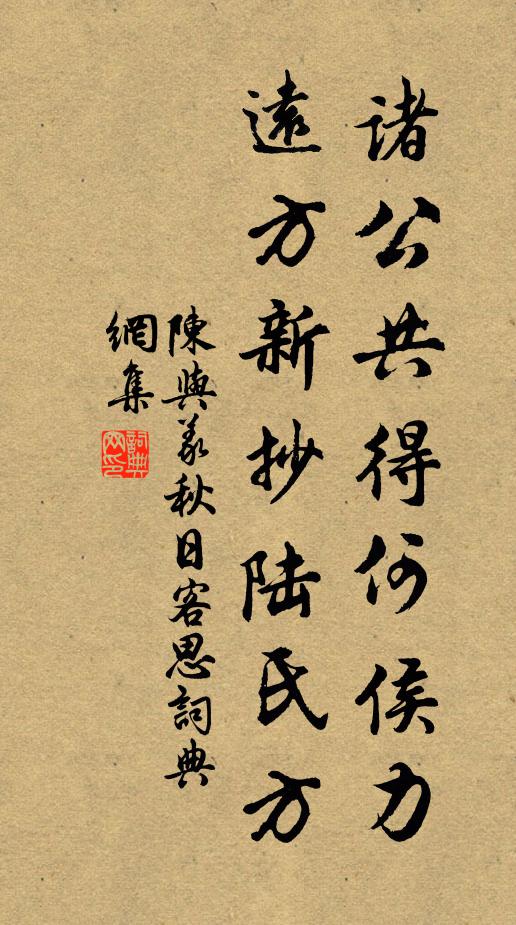 諸公共得何侯力
遠方新抄陸氏方
陳與義秋日客思詞典
網集
詞典網印